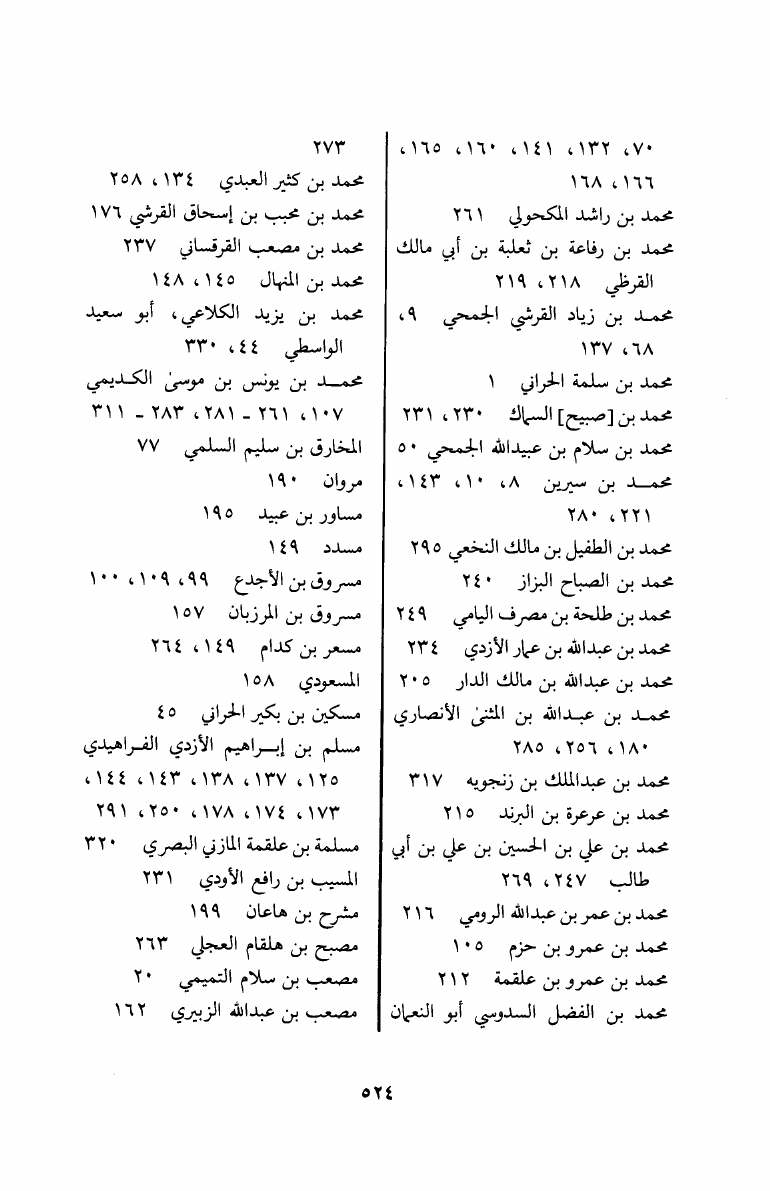 ٧٠، ١٣٢، ١٤١، ١٦٠، ١٦٥،
١٦٦، ١٦٨
محمد بن راشد المكحولي ٢٦١
محمد بن رفاعة بن ثعلبة بن أبي مالك
القرظي ٢١٨، ٢١٩
محمد بن زياد القرشي الجمحي ٩،
٦٨، ١٣٧
محمد بن سلمة الحراني ١
محمد بن [صبيح] السماك ٢٣٠، ٢٣١
محمد بن سلام بن عبيدالله الجمحي ٥٠
محمد بن سيرين ٨، ١٠، ١٤٣،
٢٢١، ٢٨٠
محمد بن الطفيل بن مالك النخعي ٢٩٥
محمد بن الصباح البزاز ٢٤٠
محمد بن طلحة بن مصرف اليامي ٢٤٩
محمد بن عبدالله بن عمار الأزدي ٢٣٤
محمد بن عبدالله بن مالك الدار ٢٠٥
محمد بن عبدالله بن المثنىٰ الأنصاري
١٨٠، ٢٥٦، ٢٨٥
محمد بن عبدالملك بن زنجويه ٣١٧
محمد بن عرعرة بن البرند ٢١٥
محمد بن علي بن الحسين بن علي بن أبي
طالب ٢٤٧، ٢٦٩
محمد بن عمر بن عبدالله الرومي ٢١٦
محمد بن عمرو بن حزم ١٠٥
محمد بن عمرو بن علقمة ٢١٢
محمد بن الفضل السدوسي أبو النعمان
٢٧٣
محمد بن كثير العبدي ١٣٤، ٢٥٨
محمد بن محبب بن إسحاق القرشي ١٧٦
محمد بن مصعب القرقساني ٢٣٧
محمد بن المنهال ١٤٥، ١٤٨
محمد بن يزيد الكلاعي، أبو سعيد
الواسطي ٤٤، ٣٣٠
محمد بن يونس بن موسىٰ الكديمي
١٠٧، ٢٦١ - ٢٨١، ٢٨٣ - ٣١١
المخارق بن سليم السلمي ٧٧
مروان ١٩٠
مساور بن عبيد ١٩٥
مسدد ١٤٩
مسروق بن الأجدع ٩٩، ١٠٩، ١٠٠
مسروق بن المرزبان ١٥٧
مسعر بن كدام ١٤٩، ٢٦٤
المسعودي ١٥٨
مسكين بن بكير الحراني ٤٥
مسلم بن إبراهيم الأزدي الفراهيدي
١٢٥، ١٣٧، ١٣٨، ١٤٣، ١٤٤،
١٧٣، ١٧٤، ١٧٨، ٢٥٠، ٢٩١
مسلمة بن علقمة المازني البصري ٣٢٠
المسيب بن رافع الأودي ٢٣١
مشرح بن هاعان ١٩٩
مصبح بن هلقام العجلي ٢٦٣
مصعب بن سلام التميمي ٢٠
مصعب بن عبدالله الزبيري ١٦٢
٥٢٤